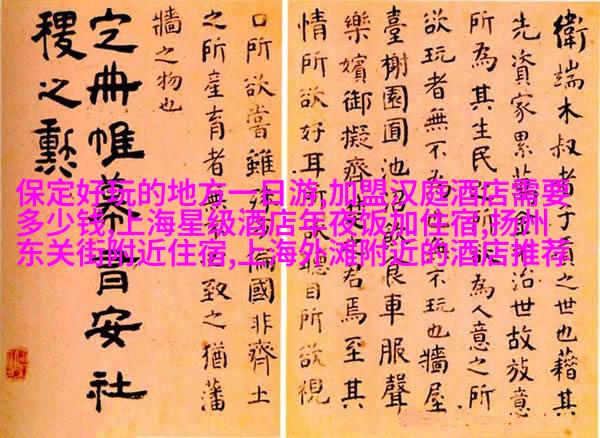 保定好玩的地方一日游,加盟汉庭酒店需要
多少钱,上海星级酒店年夜饭加住宿,扬州
东关街附近住宿,上海外滩附近的酒店推荐
衛端木叔者子貢之世也藉其
先資家累萬金治世故放意
所為其生民所為人意之所
欲玩者無不為也也牆屋
臺榭園囿池沼飲食車服聲
樂嬪御擬齊楚君焉至其
情所欲好耳所欲聽目所欲視
口所欲嘗雖殊偏國非齊土
之所產育者無致之猶藩
牆之物也
定冊帷幕有安社
稷之勳